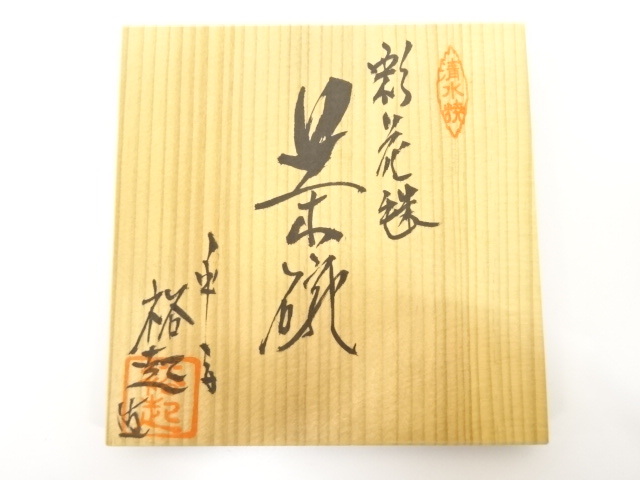 清水焼
彩花
茶碗
平安
裕起造
裕起